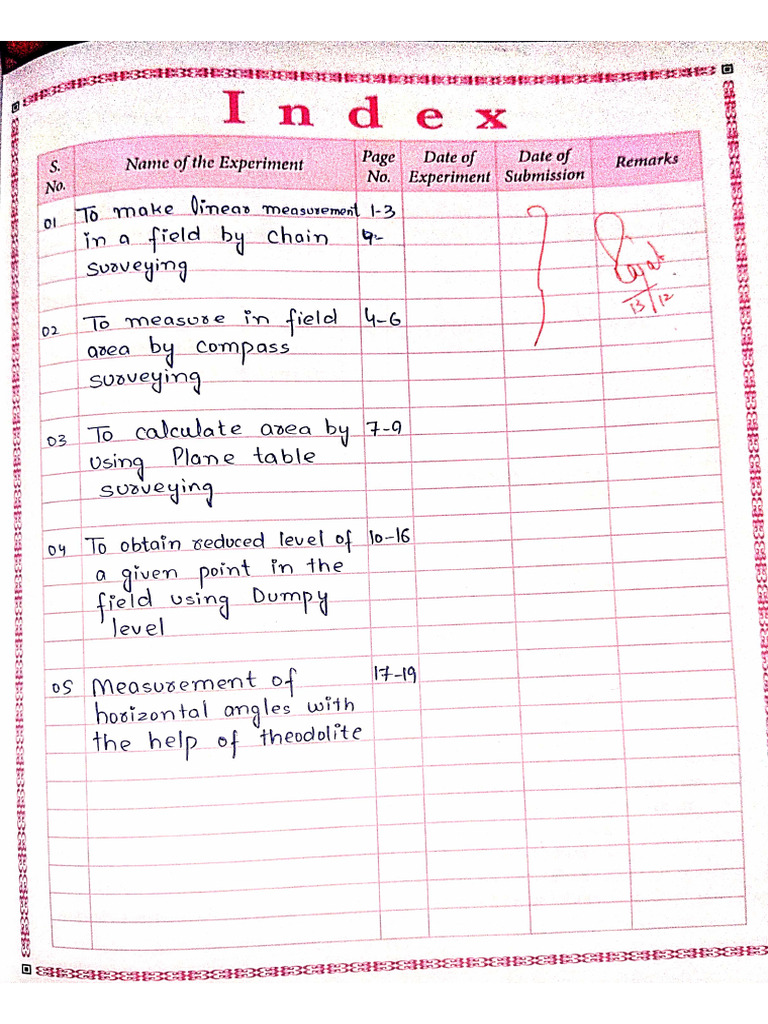 Index
S. No. Name of the Experiment Page No. Date of Experiment Date of Submission Remarks
01 To make linear measurement 1-3
in a field by chain
surveying
02 To measure in field 4-6
area by compass
surveying
13/12
03 To calculate area by 7-9
using Plane table
surveying
04 To obtain reduced level of 10-16
a given point in the
field using Dumpy
level
05 Measurement of 17-19
horizontal angles with
the help of theodolite